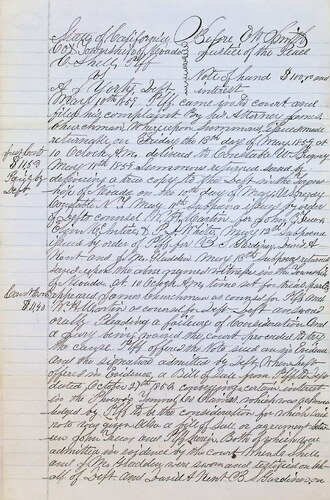 State of California
Co Township of Nevada
C Shelly Pltf
vs
A J York Deft
Before E W Smith
Justice of the Peace
Note of hand $100 and
interest
May 10th 1859 Pltf came into court and
filed his complaint By his Attorney James
Churchman Whereupon Summons issued made
returnable on Friday the 13th day of May 1859 at
10 Oclock A.M. delivered to Constable
May 11th 1859 Summons returned served by
delivering a true copy to the Deft in the Town
ship of Nevada on the 10th day of May
Constable N T May 11th Subpoena issued by order
of Deft counsel W H Martin for John
and P S White May 12th Subpoena
issued by order of Pltf for B Hardin David A
Kent and J M Gladden May 13th Subpoena returned
served upon the above named witnesses in the Township
of Nevada At 10 Oclock A.M. time set for trial parties
appeared James Churchman as counsel for Pltf and
W H Martin as counsel for Deft Deft answered
orally Pleading a failure of Consideration And
a jury being waived the court proceeded to try
the cause Pltf offered the note sued on in Evidence
and the signature admitted by Deft
offered in Evidence a Bill of Sale from Pltf to Deft
dated October 27th 1856 conveying certain interest
in the Claims which was acknow
ledged by Pltf to be the consideration for which said
note was given Also a bill of sale or agreement be
tween John and Pltf Both of which were
admitted in evidence by the court
and J M Gladden were sworn and testified on be
half of Deft and David A Kent B Hardin on
Just cost
$11.50
Paid by
Deft
Const
$4.40